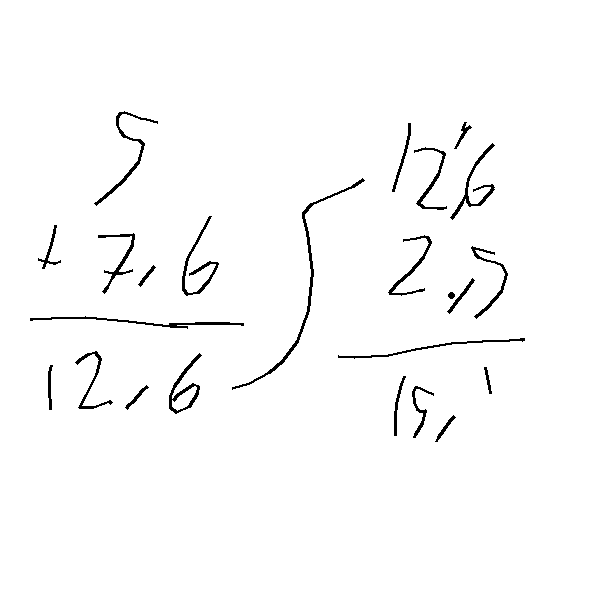 5
+ 7,6
12,6
12,6
2,5
15,1